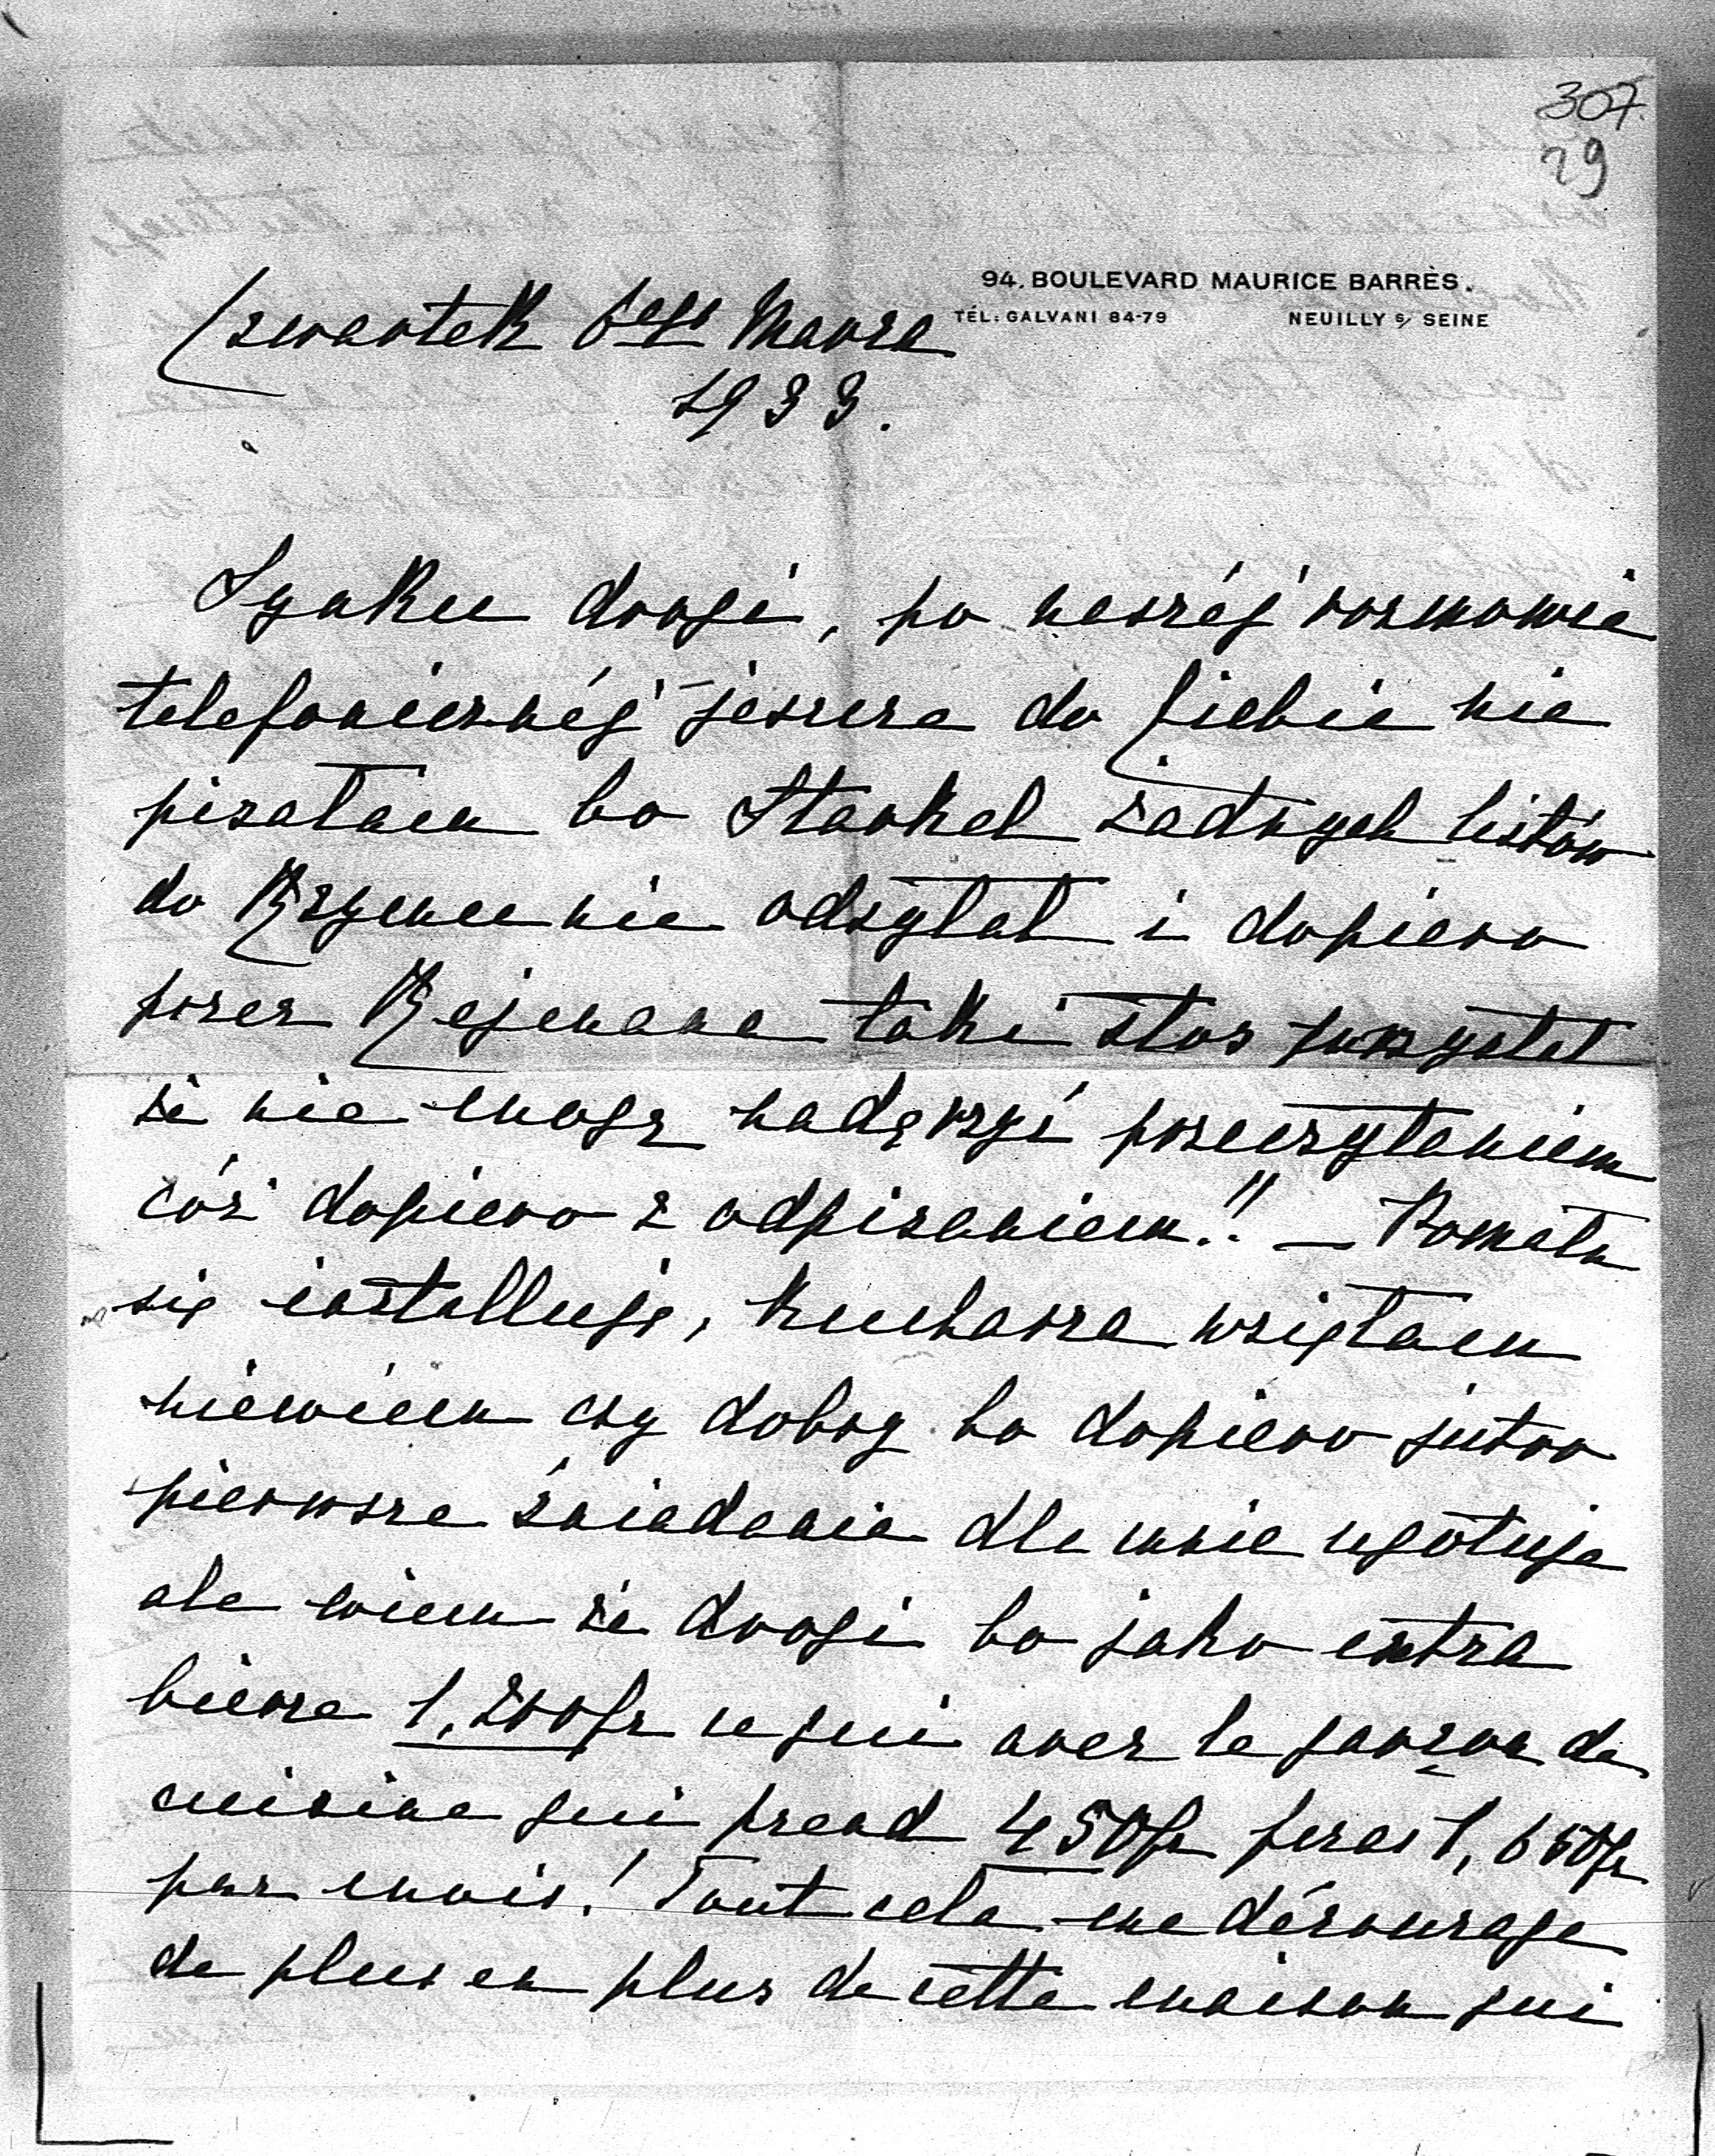 307.
29
94. BOULEVARD MAURICE BARRÈS.
TÉL: GALVANI 84-79 NEUILLY S/ SEINE
Czwartek 6ego Marca
1933.
Ignaku drogi, po naszéj rozmowie
telefonicznéj jeszcze do Ciebie nie
pisałam bo Starkel żadnych listów
do Rzymu nie odsyłał i dopiero
przez Rejmana taki stos przysłał
że nie mogę nadążyć przeczytaniem
cóż dopiero z odpisaniem!! – Pomału
się installuję, kucharza wzięłam
niewiem czy dobry bo dopiero jutro
pierwsze śniadanie dla mnie ugotuje
ale wiem że drogi bo jako extra
bierze 1,200fr ce qui avec le garçon de
cuisine qui prend 450fr feras 1,650fr
par mois! Tout cela me décourage
de plus en plus de cette maison qui